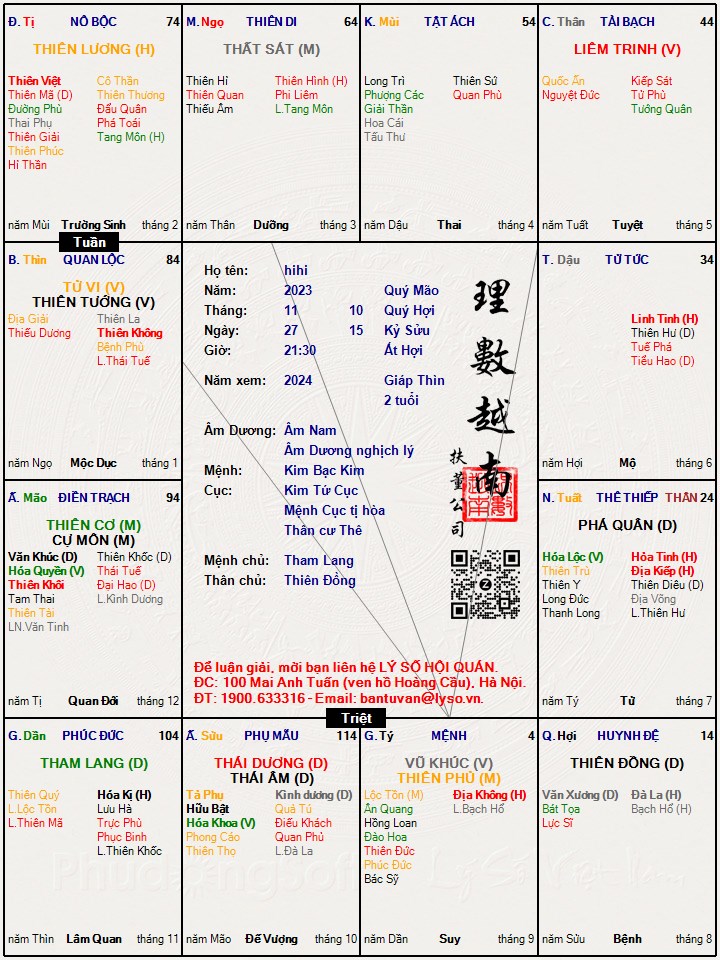 Đ. Tị NÔ BỘC 74
THIÊN LƯƠNG (H)
Thiên Việt Cô Thần
Thiên Mã (D) Thiên Thương
Đường Phù Đẩu Quân
Thai Phụ Phá Toái
Thiên Giải Tang Môn (H)
Thiên Phúc
Hỉ Thần
năm Mùi Trường Sinh tháng 2
M. Ngọ THIÊN DI 64
THẤT SÁT (M)
Thiên Hỉ Thiên Hình (H)
Thiên Quan Phi Liêm
Thiếu Âm L.Tang Môn
năm Thân Dưỡng tháng 3
K. Mùi TẬT ÁCH 54
Long Trì Thiên Sứ
Phượng Các Quan Phù
Giải Thần
Hoa Cái
Tấu Thư
năm Dậu Thai tháng 4
C. Thân TÀI BẠCH 44
LIÊM TRINH (V)
Quốc Ấn Kiếp Sát
Nguyệt Đức Tử Phù
Tướng Quân
năm Tuất Tuyệt tháng 5
Tuần
B. Thìn QUAN LỘC 84
TỬ VI (V)
THIÊN TƯỚNG (V)
Địa Giải Thiên La
Thiếu Dương Thiên Không
Bệnh Phù
L.Thái Tuế
năm Ngọ Mộc Dục tháng 1
Họ tên: hihi
Năm: 2023 Quý Mão
Tháng: 11 10 Quý Hợi
Ngày: 27 15 Kỷ Sửu
Giờ: 21:30 Ất Hợi
Năm xem: 2024 Giáp Thìn
2 tuổi
Âm Dương: Âm Nam
Âm Dương nghịch lý
Mệnh: Kim Bạc Kim
Cục: Kim Tứ Cục
Mệnh Cục tị hòa
Thân cư Thê
Mệnh chủ: Tham Lang
Thân chủ: Thiên Đồng
理數越南
扶董公司
Để luận giải, mời bạn liên hệ LÝ SỐ HỘI QUÁN.
ĐC: 100 Mai Anh Tuấn (ven hồ Hoàng Cầu), Hà Nội.
ĐT: 1900.633316 - Email: bantuvan@lyso.vn.
T. Dậu TỬ TỨC 34
Linh Tinh (H)
Thiên Hư (D)
Tuế Phá
Tiểu Hao (D)
năm Hợi Mộ tháng 6
Ấ. Mão ĐIỀN TRẠCH 94
THIÊN CƠ (M)
CỰ MÔN (M)
Văn Khúc (D) Thiên Khốc (D)
Hóa Quyền (V) Thái Tuế
Thiên Khôi Đại Hao (D)
Tam Thai L.Kình Dương
Thiên Tài
LN.Văn Tinh
năm Tị Quan Đới tháng 12
N. Tuất THÊ THIẾP THÂN 24
PHÁ QUÂN (D)
Hóa Lộc (V) Hỏa Tinh (H)
Thiên Trù Địa Kiếp (H)
Thiên Y Thiên Diêu (D)
Long Đức Địa Võng
Thanh Long L.Thiên Hư
năm Tý Tử tháng 7
Triệt
G. Dần PHÚC ĐỨC 104
THAM LANG (D)
Thiên Quý Hóa Kị (H)
L.Lộc Tồn Lưu Hà
L.Thiên Mã Trực Phù
Phục Binh
L.Thiên Khốc
năm Thìn Lâm Quan tháng 11
Ấ. Sửu PHỤ MẪU 114
THÁI DƯƠNG (D)
THÁI ÂM (D)
Tả Phụ Kình dương (D)
Hữu Bật Quả Tú
Hóa Khoa (V) Điếu Khách
Phong Cáo Quan Phủ
Thiên Thọ L.Đà La
năm Mão Đế Vượng tháng 10
G. Tý MỆNH 4
VŨ KHÚC (V)
THIÊN PHỦ (M)
Lộc Tồn (M) Địa Không (H)
Ân Quang L.Bạch Hổ
Hồng Loan
Đào Hoa
Thiên Đức
Phúc Đức
Bác Sỹ
năm Dần Suy tháng 9
Q. Hợi HUYNH ĐỆ 14
THIÊN ĐỒNG (D)
Văn Xương (D) Đà La (H)
Bát Tọa Bạch Hổ (H)
Lực Sĩ
năm Sửu Bệnh tháng 8